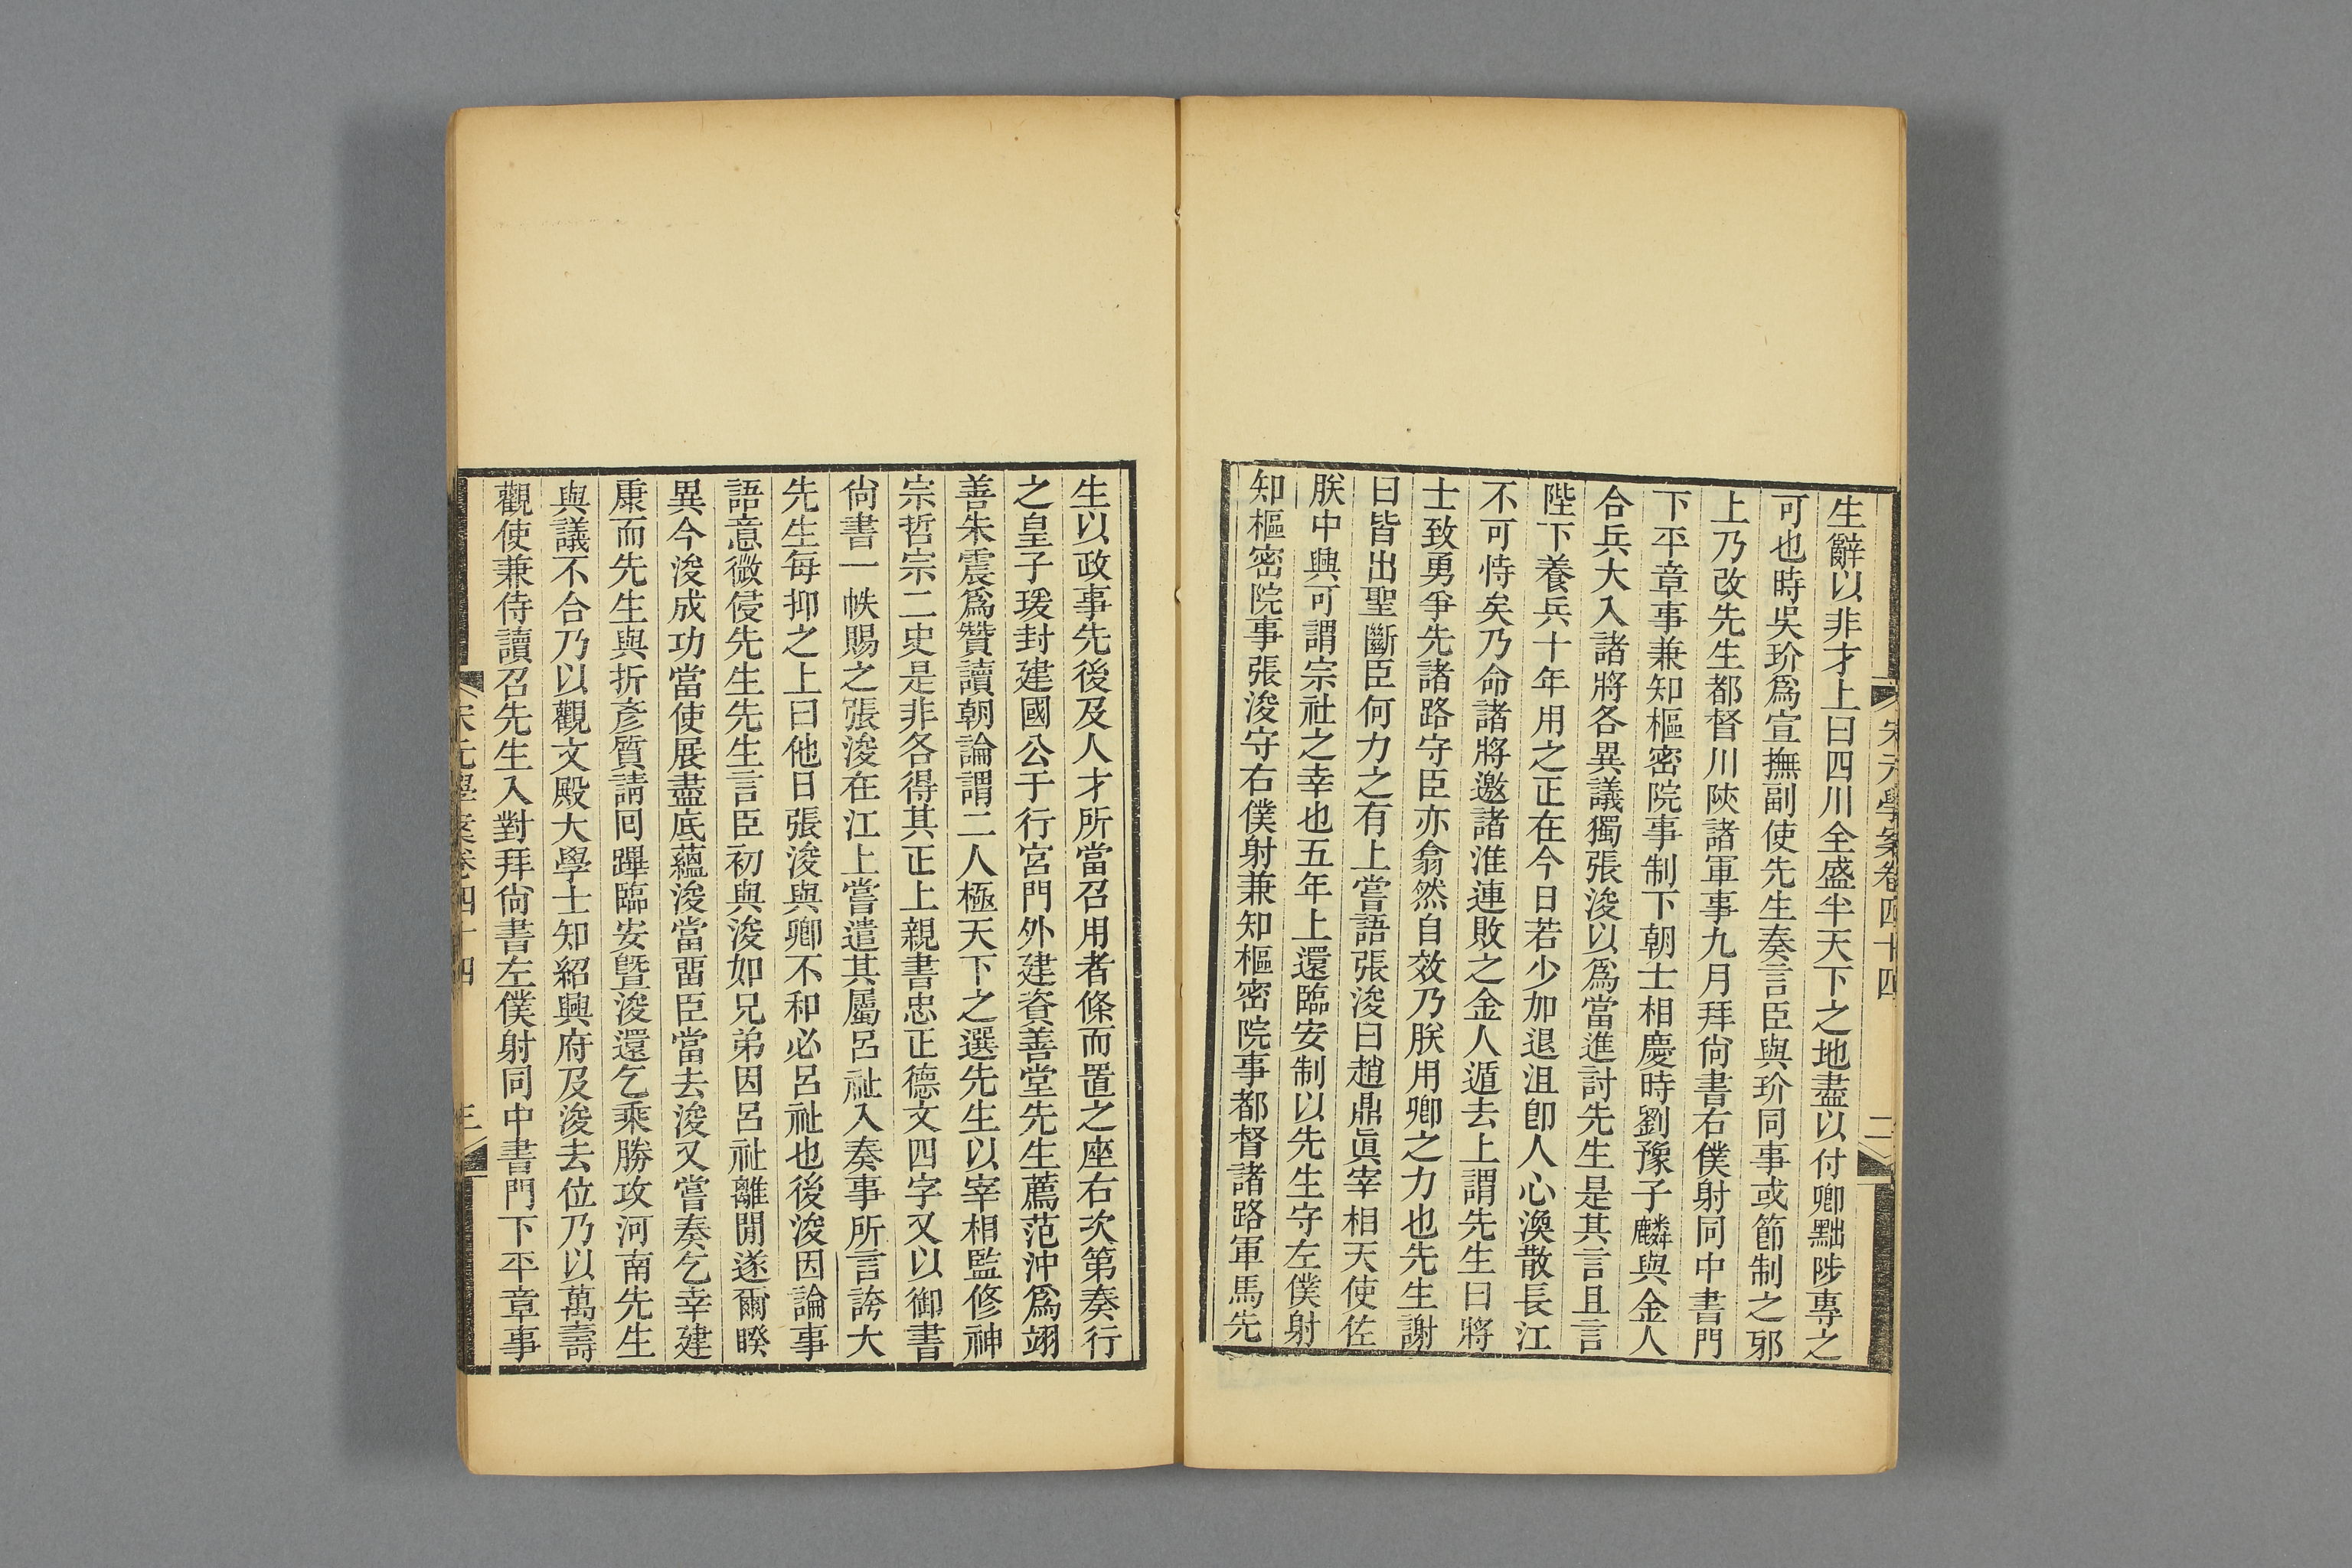 宋元學案卷四十四
二
生辭以非才上曰四川全盛半天下之地盡以付卿黜陟專之
可也時吳玠爲宣撫副使先生奏言臣與玠同事或節制之邪
上乃改先生都督川陝諸軍事九月拜尙書右僕射同中書門
下平章事兼知樞密院事制下朝士相慶時劉豫子麟與金人
合兵大入諸將各異議獨張浚以爲當進討先生是其言且言
陛下養兵十年用之正在今日若少加退沮卽人心渙散長江
不可恃矣乃命諸將邀諸淮連敗之金人遁去上謂先生曰將
士致勇爭先諸路守臣亦翕然自效乃朕用卿之力也先生謝
曰皆出聖斷臣何力之有上嘗語張浚曰趙鼎眞宰相天使佐
朕中興可謂宗社之幸也五年上還臨安制以先生守左僕射
知樞密院事張浚守右僕射兼知樞密院事都督諸路軍馬先
生以政事先後及人才所當召用者條而置之座右次第奏行
之皇子瑗封建國公于行宮門外建資善堂先生薦范沖爲翊
善朱震爲贊讀朝論謂二人極天下之選先生以宰相監修神
宗哲宗二史是非各得其正上親書忠正德文四字又以御書
尙書一帙賜之張浚在江上嘗遣其屬呂祉入奏事所言誇大
先生每抑之上曰他日張浚與卿不和必呂祉也後浚因論事
語意微侵先生先生言臣初與浚如兄弟因呂祉離閒遂爾睽
異今浚成功當使展盡底蘊浚當畱臣當去浚又嘗奏乞幸建
康而先生與折彥質請囘蹕臨安曁浚還乞乘勝攻河南先生
與議不合乃以觀文殿大學士知紹興府及浚去位乃以萬壽
觀使兼侍讀召先生入對拜尙書左僕射同中書門下平章事
宋元學案卷四十四
三